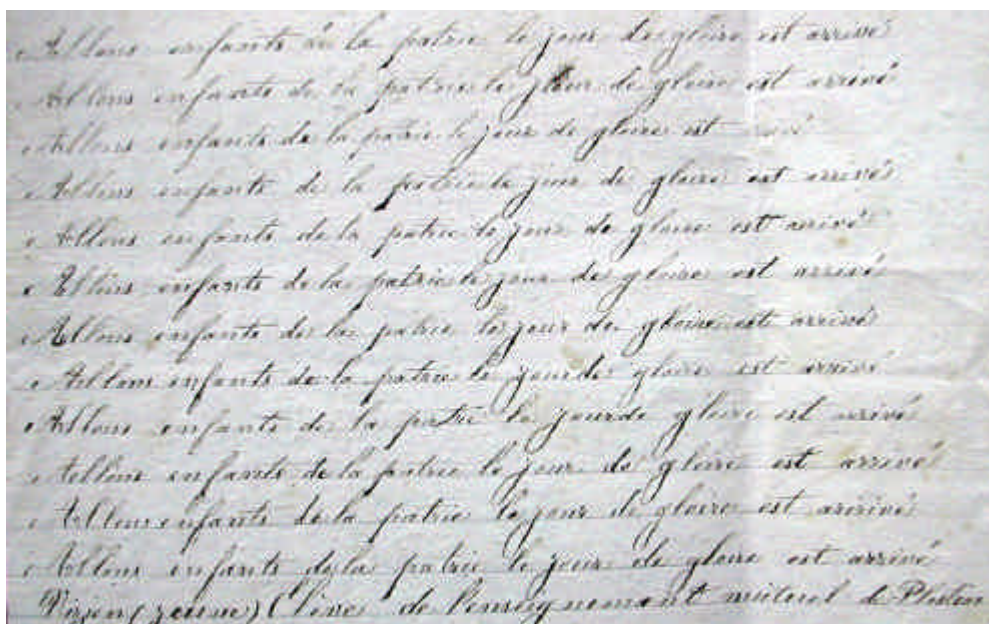 Allons enfants de la patrie le jour de gloire est arrivé
Allons enfants de la patrie le jour de gloire est arrivé
Allons enfants de la patrie le jour de gloire est rivé
Allons enfants de la patrie le jour de gloire est arrivé
Allons enfants de la patrie le jour de gloire est arrivé
Allons enfants de la patrie le jour de gloire est arrivé
Allons enfants de la patrie le jour de gloire est arrivé
Allons enfants de la patrie le jour de gloire est arrivé
Allons enfants de la patrie le jour de gloire est arrivé
Allons enfants de la patrie le jour de gloire est arrivé
Allons enfants de la patrie le jour de gloire est arrivé
Allons enfants de la patrie le jour de gloire est arrivé
(jeune) de l'enseignement mutuel de